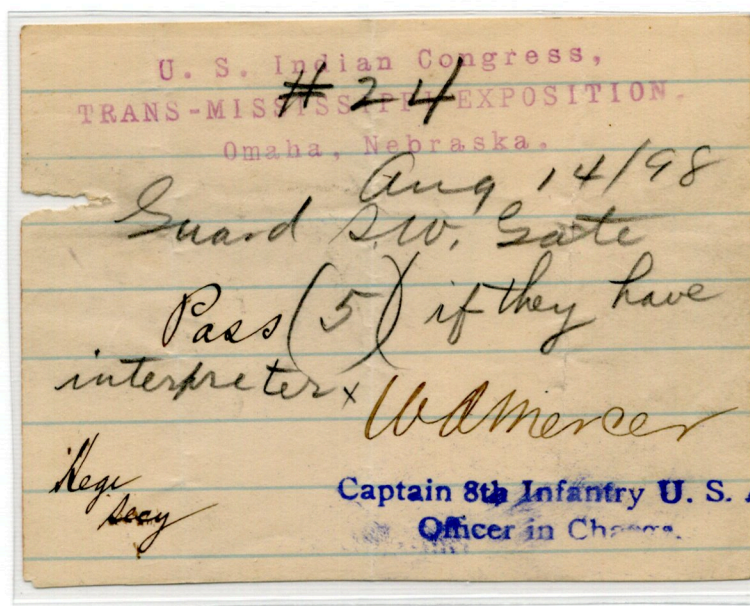 U. S. Indian Congress,
# 24
TRANS-MISSISSIPPI EXPOSITION.
Omaha, Nebraska.
Aug 14/98
Guard S.W. Gate
Pass (5) if they have
interpreter x
WAMercer
Hege
secy
Captain 8th Infantry U. S.
Officer in Charge.